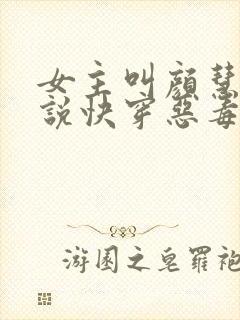 女主叫顔慧
說快穿惡毒
游園之皂羅袍